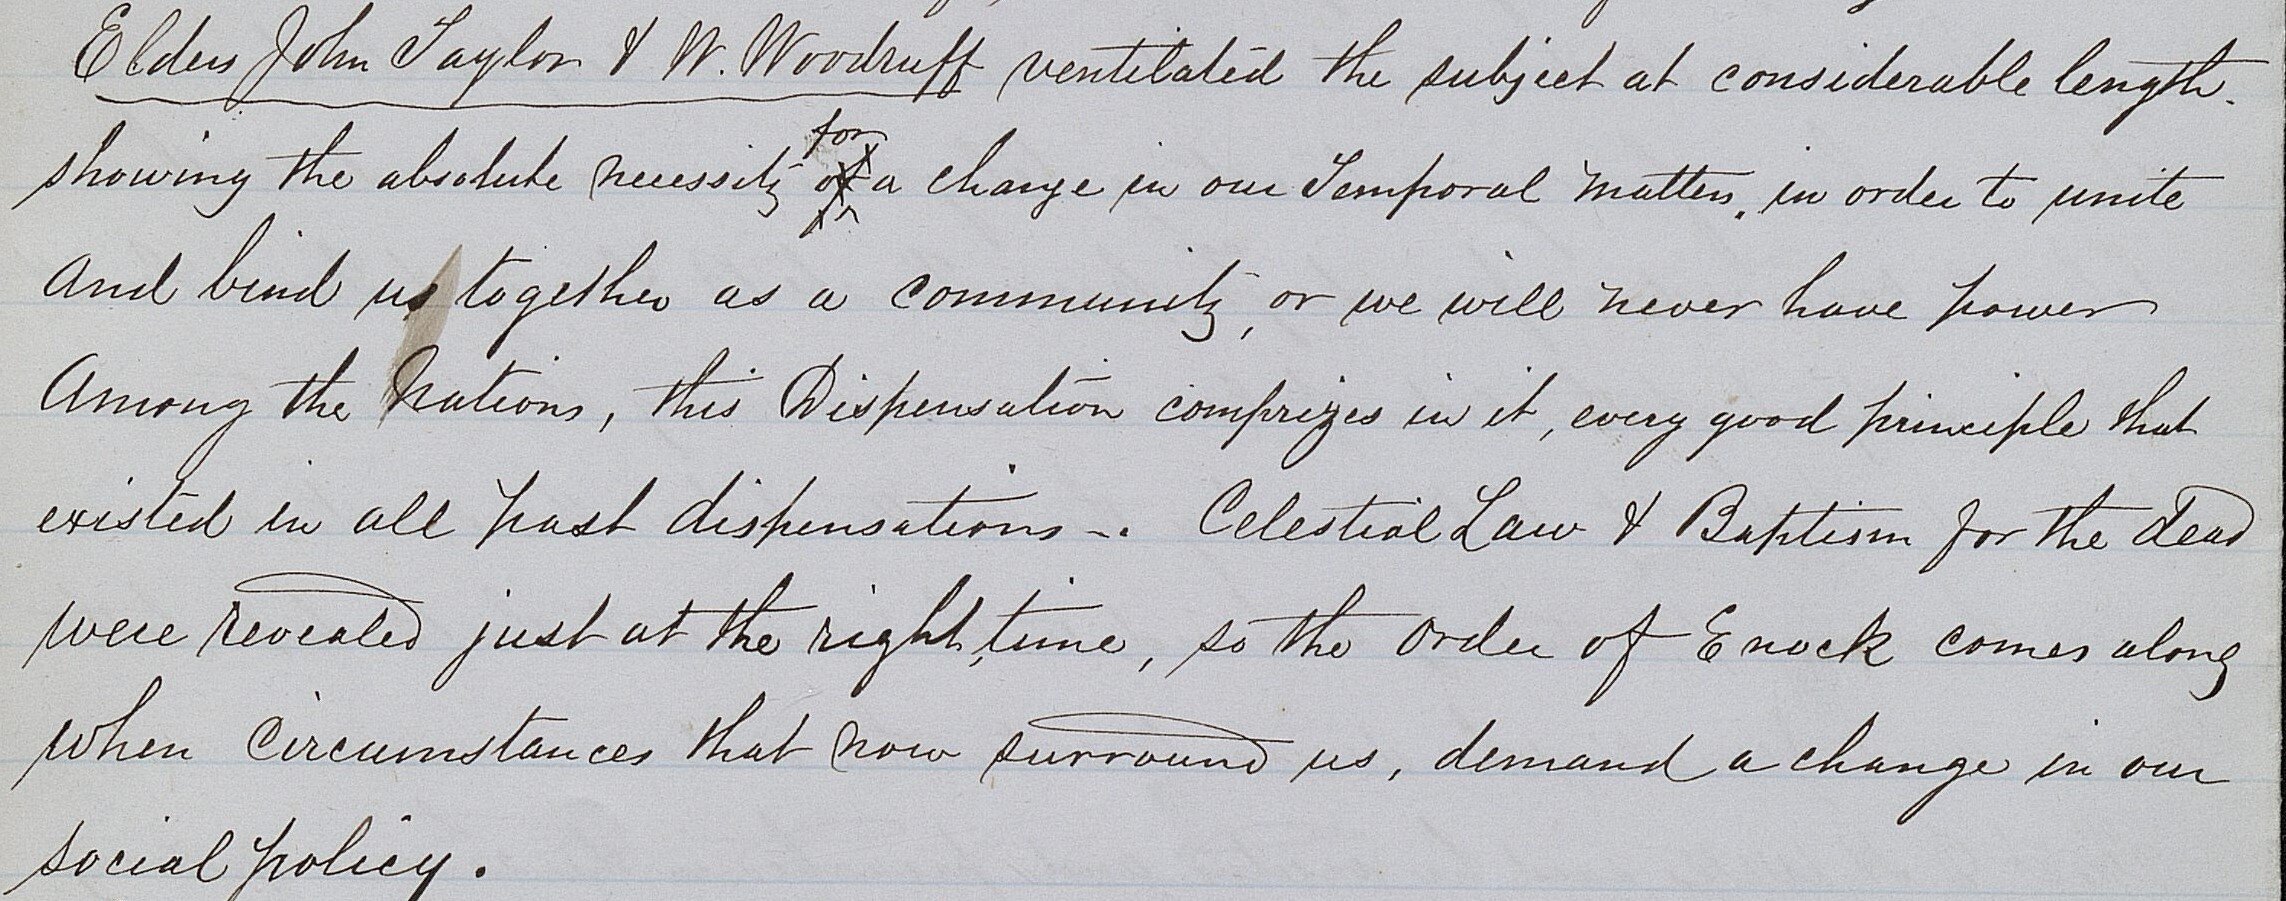 Elders John Taylor & W. Woodruff ventilated the subject at considerable length.
showing the absolute necessity for a change in our Temporal matters. in order to unite
and bind us together as a community, or we will never have power
Among the Nations, this Dispensation comprizes in it, every good principle that
existed in all past dispensations -. Celestial Law & Baptism for the dead
were revealed just at the right time, so the Order of Enock comes along
when Circumstances that now surround us, demand a change in our
social policy.